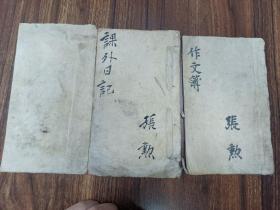 課外日記
張勲
作文簿
張勲